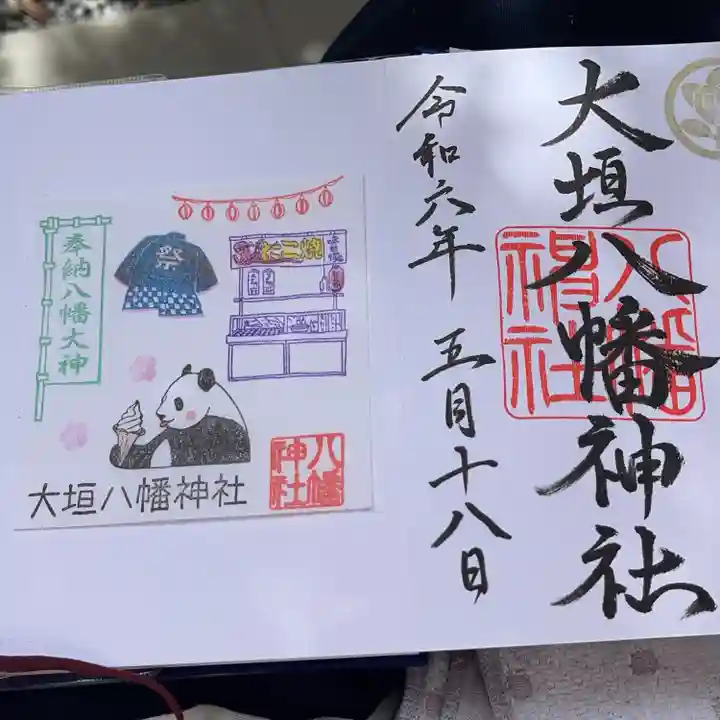 大垣八幡神社
八幡神社
令和六年 五月十八日
奉納八幡大神
祭
たこ焼
大垣八幡神社
八幡神社